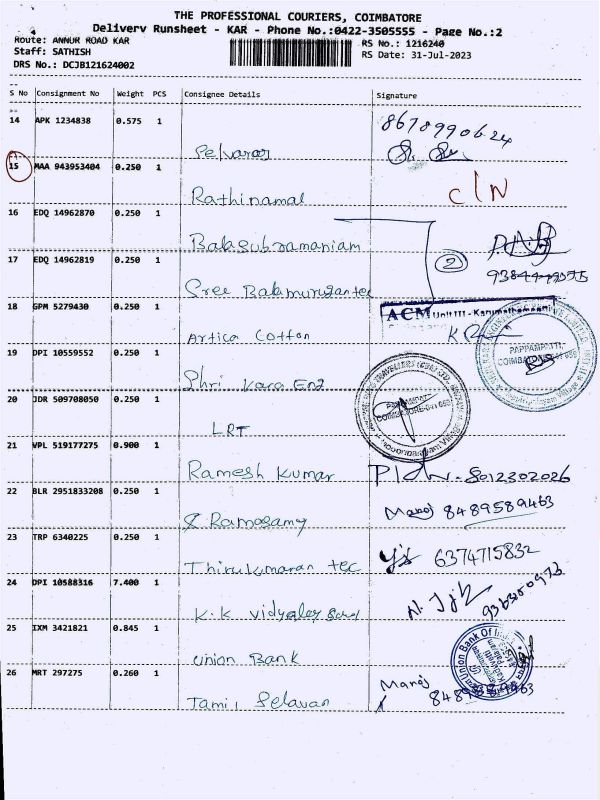 THE PROFESSIONAL COURIERS, COIMBATORE
Delivery Runsheet - KAR - Phone No.:0422-3505555 - Page No.:2
Route: ANNUR ROAD KAR
RS No.: 1216240
Staff: SATHISH
RS Date: 31-Jul-2023
DRS No.: DCJB121624002
S No Consignment No Weight PCS Consignee Details Signature
14 APK 1234838 0.575 1 Selvaraj 8678990624
15 MAA 943953404 0.250 1 Rathinamal C/N
16 EDQ 14962870 0.250 1 Balasubramaniam
17 EDQ 14962819 0.250 1 Sree Balamurugan tec 2
18 GPM 5279430 0.250 1 Artica Cotton ACM Unit III - Karumathampatti
19 DPI 10559552 0.250 1 Shri Kara Eng PAPPAMPATTI, COIMBATORE
20 JDR 509708050 0.250 1 LRT
21 VPL 519177275 0.900 1 Ramesh Kumar 8012302026
22 BLR 2951833208 0.250 1 Ramasamy Manoj 8489589463
23 TRP 6340225 0.250 1 Thirukumaran tec 6374715832
24 DPI 10588316 7.400 1 K.K
25 IXM 3421821 0.845 1 Union Bank Union Bank Of India
26 MRT 297275 0.260 1 Tamil Selavan Manoj